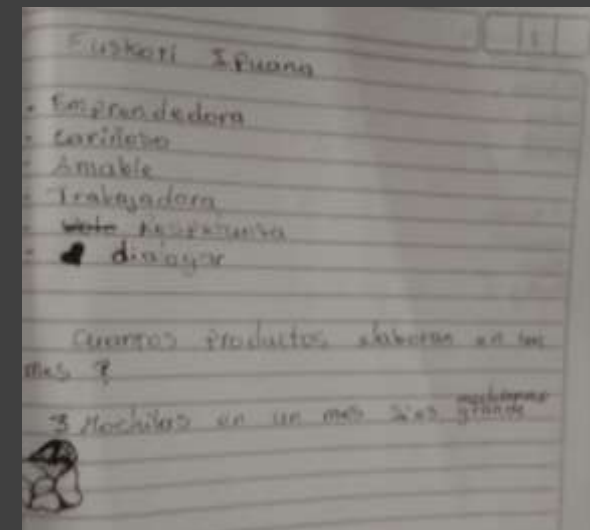 Euskoti Ipuana
- Emprendedora
- Cariñoso
- Amable
- Trabajadora
-
- dialogar
Cuantos productos elaboran en un
mes ?
3 Mochilas en un mes si es grande